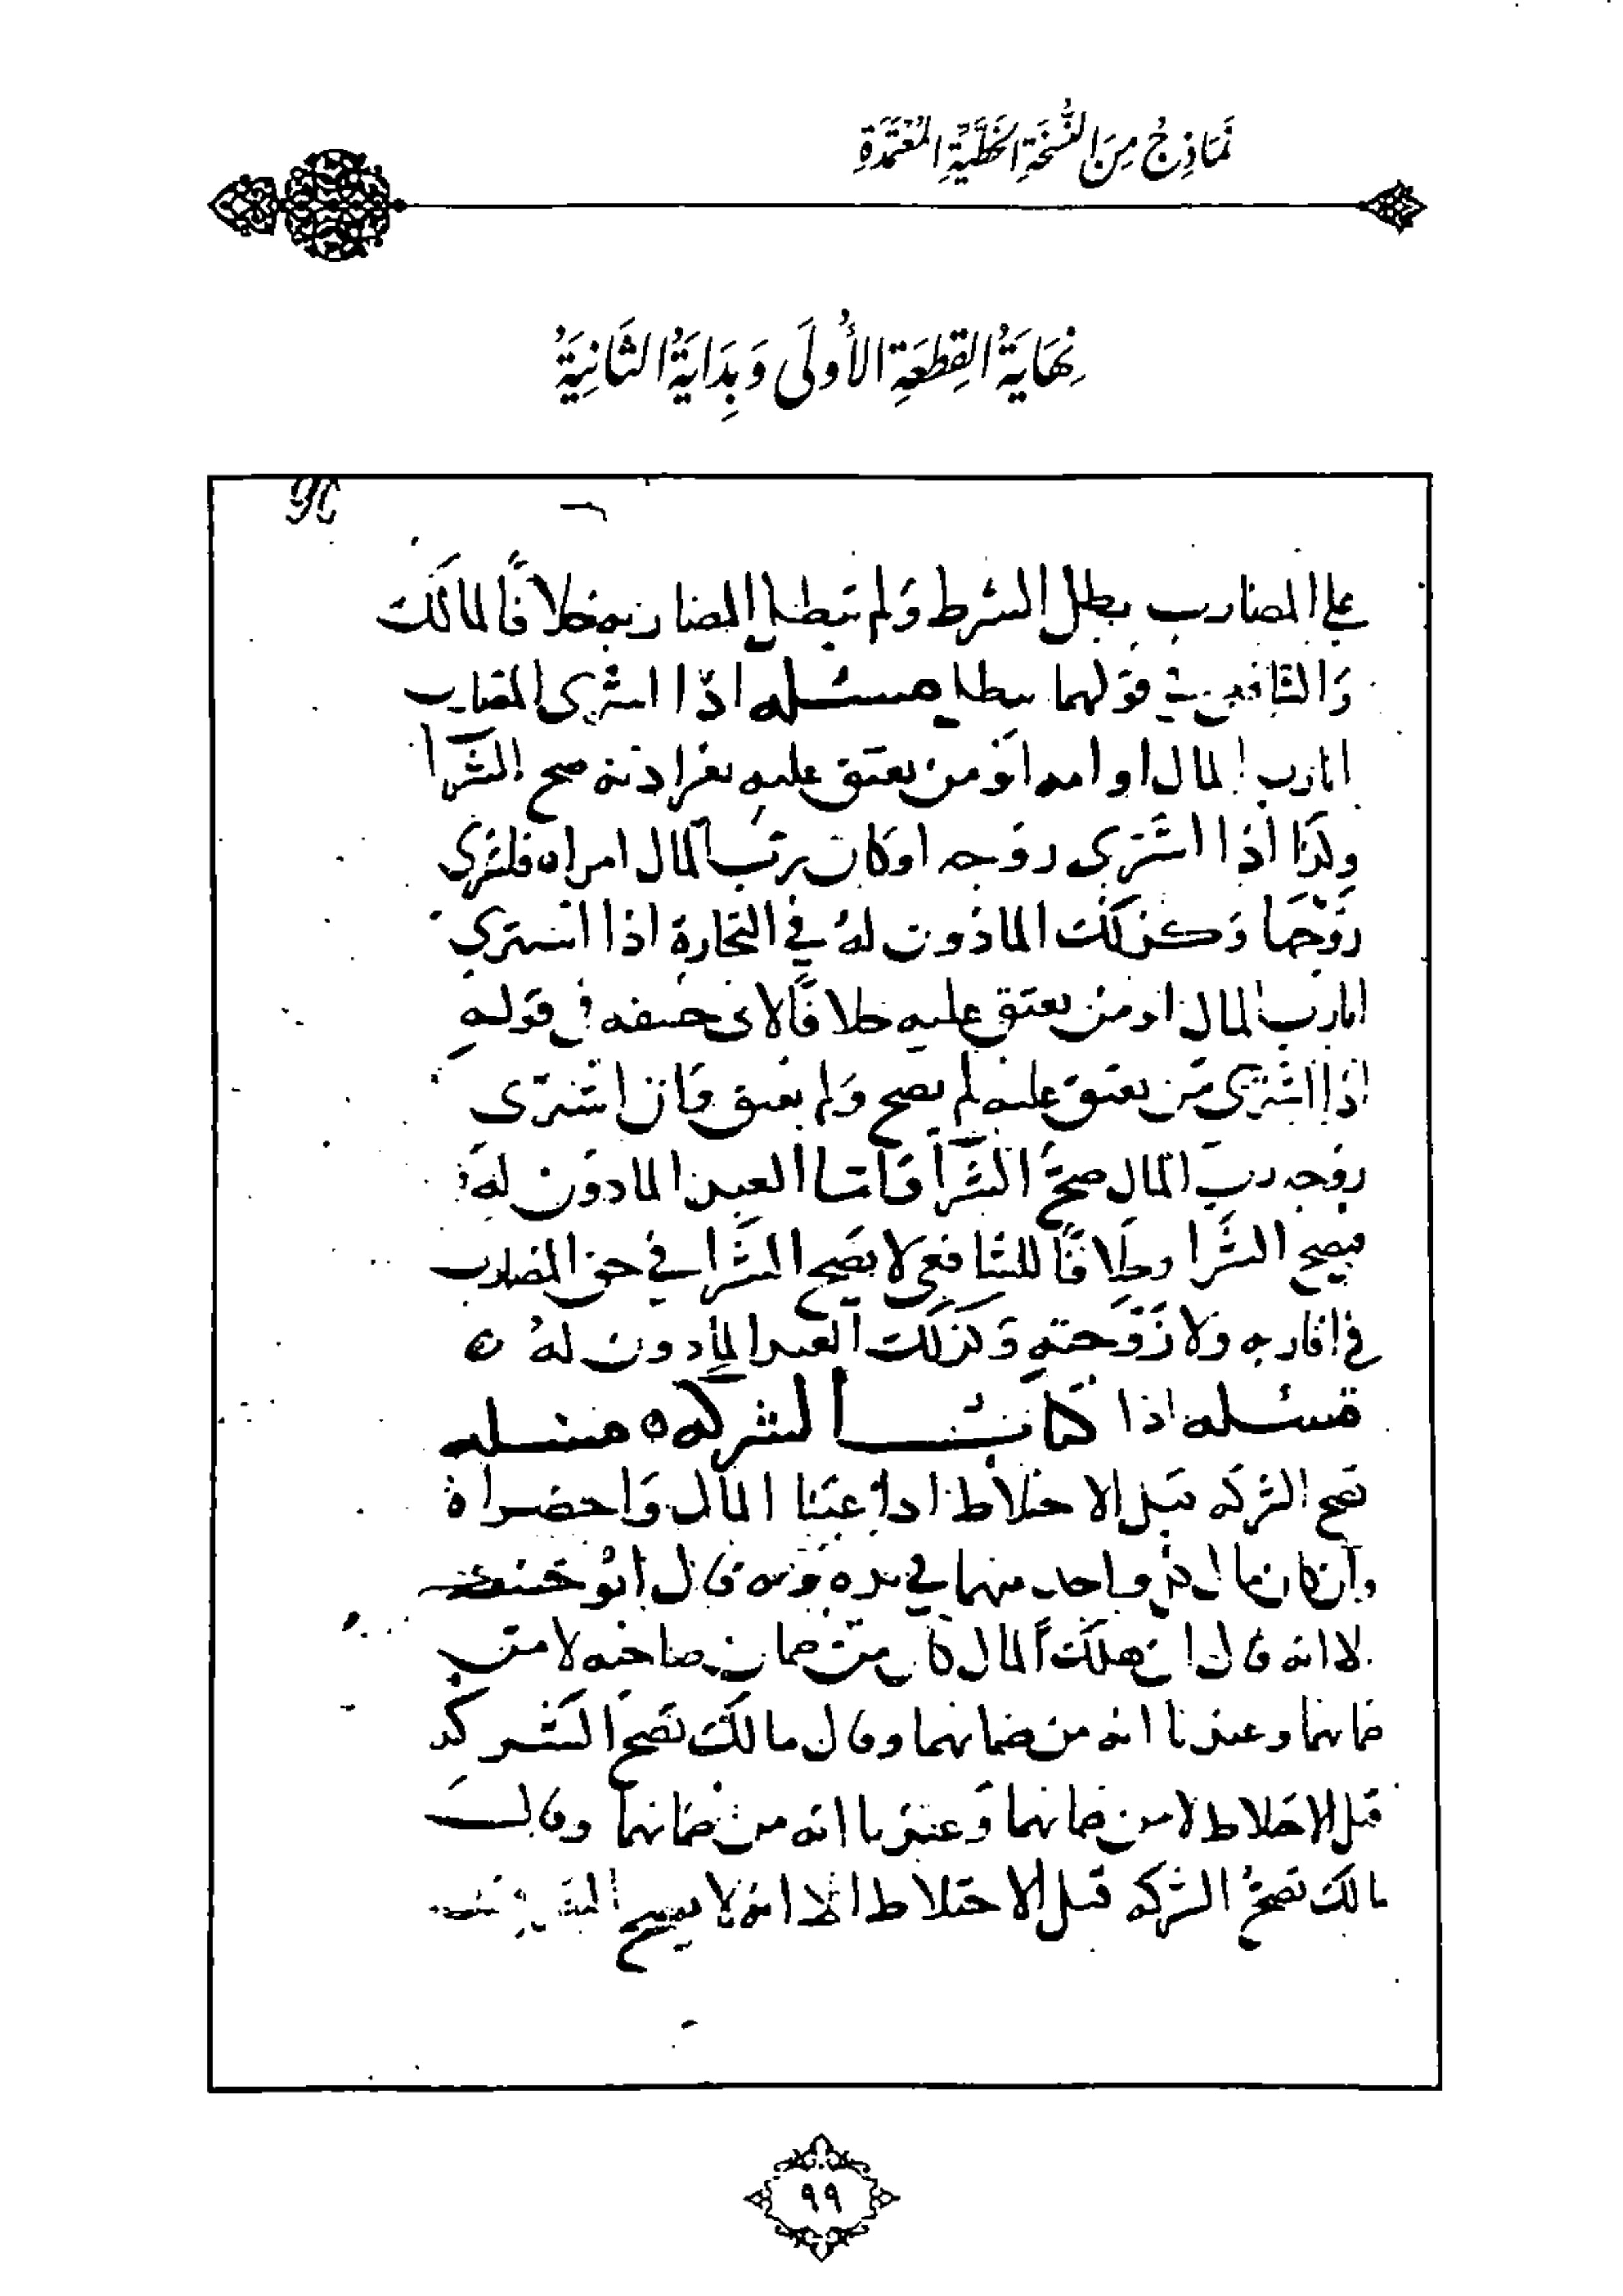 نَمَاذِجُ مِنَ النُّسْخَةِ الخَطِّيَّةِ المُعْتَمَدَةِ
نِهَايَةُ القِطْعَةِ الأُولَى وَبِدَايَةُ الثَّانِيَةِ
على المضارب بطل الشرط وَلم تبطل المضاربه خلافًا لمالك
وَالشافعي في قولهما يبطل مسئله اذا اشترى المضارب
ابا رب المال او امه اوْ من يعتق عليه بغير اذنه صح الشرا
وكذا اذا اشترى زوجه او كان رب المال امراه فاشترى
زَوْجها وَكذلك الماذون لهُ في التجارة اذا اشترى
ابا رب المال او من يعتق عليه خلافًا لابى حنيفه في قوله
اذا اشترى من يعتق عليه لم يصح وَلم يعتق وَان اشترى
زوجه رب المال صحَّ الشرا وَاما العبد الماذون لهَ
فيصح الشرا وخلافًا للشافعي لا يصَح الشرا في حق المضارب
في اقاربه ولا زَوْجته وَكذلك العبد الماذون لهُ ه
مسئله اذا كانت الشركه ه مسئله
تصح الشركه قبل الاختلاط اذا عينا المال وَاحضراه
وان كان مال كل واحد منهما في يده وبه قال ابو حنيفه
الا انه قال ان هلك المال كان من ضمان صاحبه لا من
ضمانهما وعندنا انه من ضمانهما وقال مالك تصح الشركه
قبل الاختلاط لا من ضمانهما وَعندنا انه من ضمانهما وقال
مالك تصحُّ الشركه قبل الاختلاط الا انهُ لا يصح
٩٩